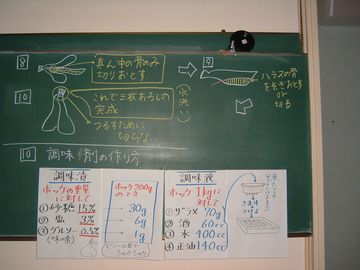 8
真ん中の骨のみ
切りおとす
9
ハラスの骨
をそぎおとす
or
切る
10
これで三枚おろしの
完成
水洗い
つるすために
切らない
10 調味剤の作り方
調味液
ホッケの重量
に対して
①砂糖 15%
②塩 3%
③グルソー 0.5%
(味の素)
ホッケ 200gのとき
30g
6g
1g
ビニール袋で
調味液
ホッケ 1kgに
対して
①ザラメ 70g
②酒 60cc
③水 400cc
④正油 140cc